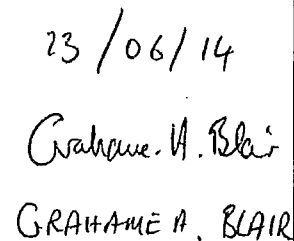 23/06/14
Grahame. A. Blair
GRAHAME A. BLAIR